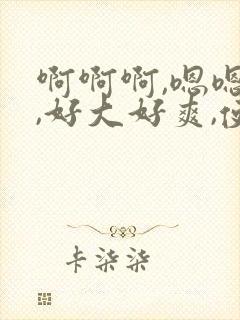 啊啊啊,嗯嗯
,好大好爽,
卡柒柒